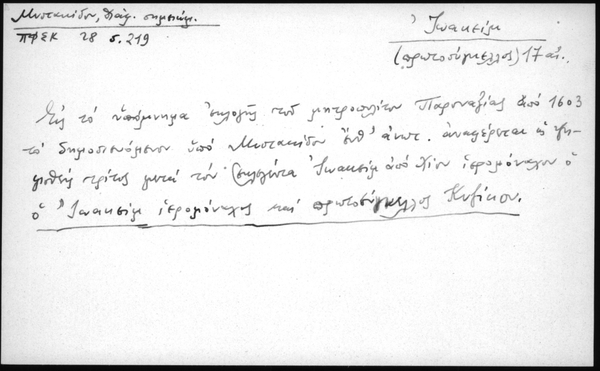 Μυστακίδου, Διάφ. σημειώμ.
ΠΦΣΚ 28 σ. 219
Ἰωακείμ
(πρωτοσύγκελλος) 17 αἰ.
Εἰς τὸ ὑπόμνημα ἐκλογῆς τοῦ μητροπολίτου Παροναξίας ἀπό 1603
τὸ δημοσιευόμενον ὑπό Μυστακίδου ἔνθ' ἀνωτ. ἀναφέρεται ὁ ψη-
φισθείς τρίτος μετά τὸν ἐκλεγέντα Ἰωακείμ ἀπό Χίου ἱερομόναχον ὁ
ὁ Ἰωακείμ ἱερομόναχος καί πρωτοσύγκελλος Κυζίκου.